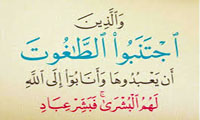 وَالَّذِينَ
ٱجْتَنَبُواْ الطَّٰغُوتَ
أَن يَعْبُدُوهَا وَأَنَابُوٓاْ إِلَى اللَّهِ
لَهُمُ الْبُشْرَىٰ ۚ فَبَشِّرْ عِبَادِ